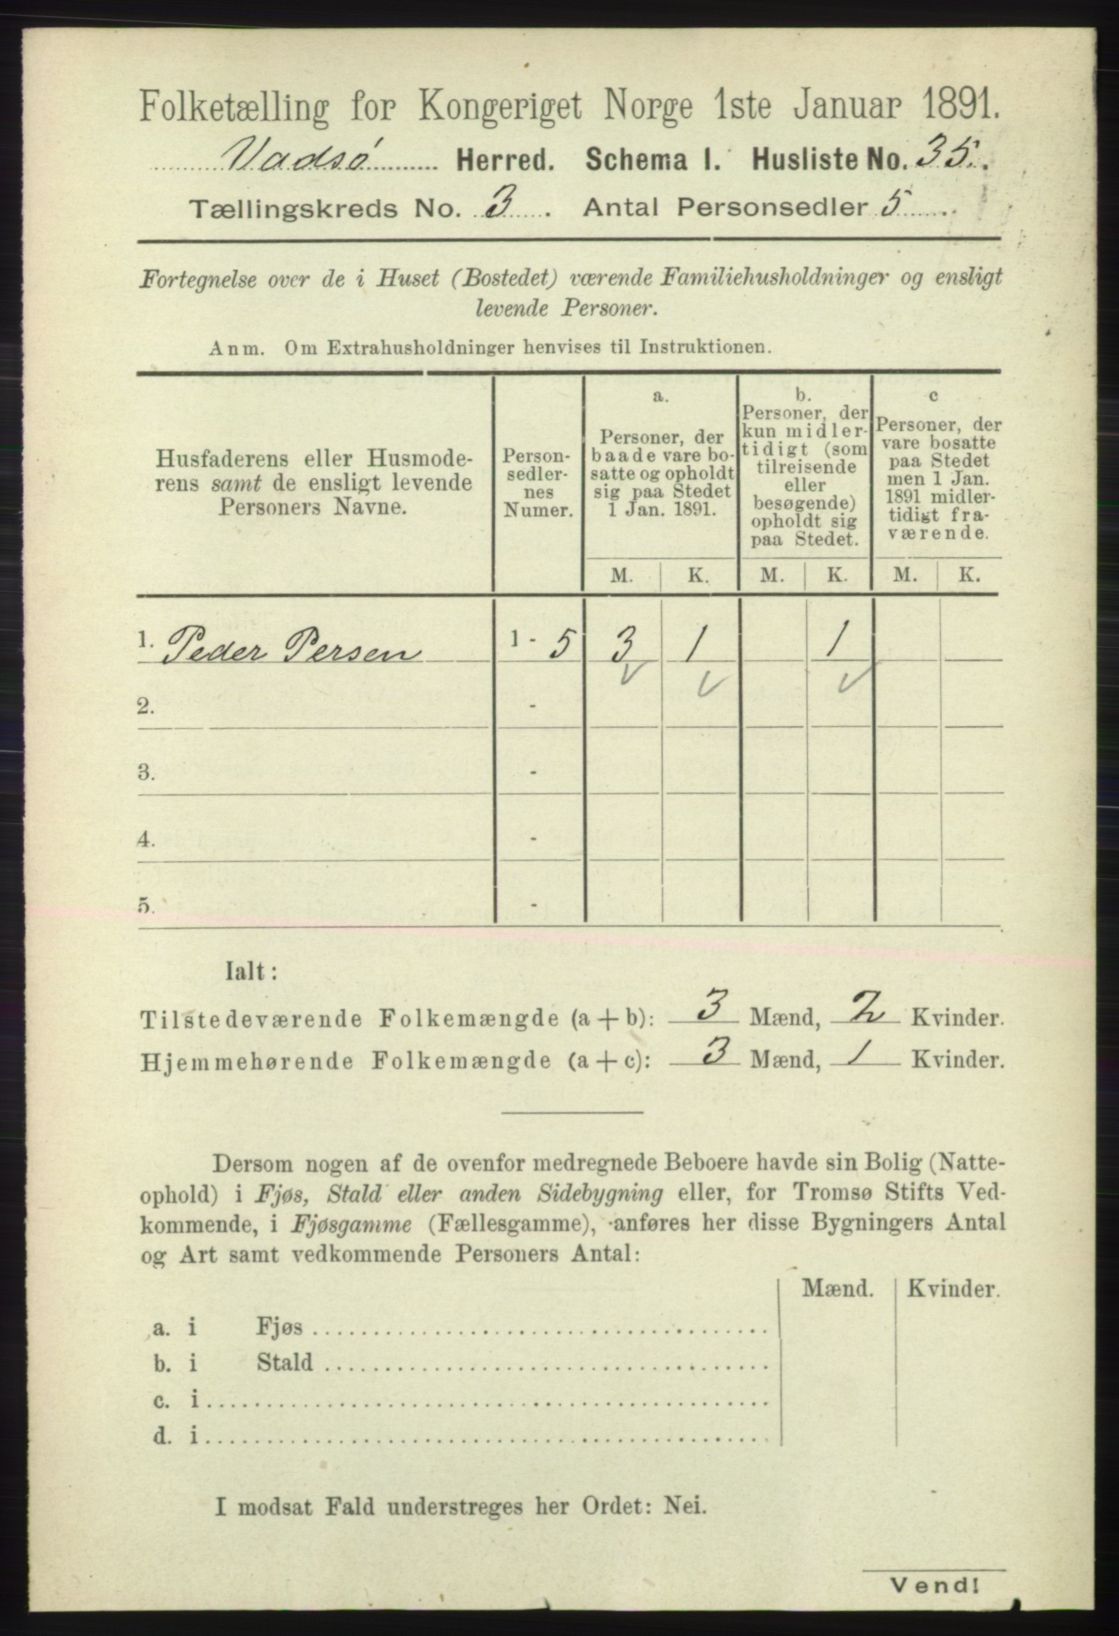 Folketælling for Kongeriget Norge 1ste Januar 1891.
Vadsø Herred. Schema I. Husliste No. 35.
Tællingskreds No. 3. Antal Personsedler 5
Fortegnelse over de i Huset (Bostedet) værende Familiehusholdninger og ensligt
levende Personer.
Anm. Om Extrahusholdninger henvises til Instruktionen.
Husfaderens eller Husmode-
rens samt de ensligt levende
Personers Navne.
Person-
sedler-
nes
Numer.
a.
Personer, der
baade vare bo-
satte og opholdt
sig paa Stedet
1 Jan. 1891.
b.
Personer, der
kun midler-
tidigt (som
tilreisende
eller
besøgende)
opholdt sig
paa Stedet.
c
Personer, der
vare bosatte
paa Stedet
men 1 Jan.
1891 midler-
tidigt fra-
værende.
M. K. M. K. M. K.
1. Peder Persen 1 - 5 3 1 1
2. -
3. -
4. -
5. -
Ialt:
Tilstedeværende Folkemængde (a+b): 3 Mænd, 2 Kvinder.
Hjemmehørende Folkemængde (a+c): 3 Mænd, 1 Kvinder.
Dersom nogen af de ovenfor medregnede Beboere havde sin Bolig (Natte-
ophold) i Fjøs, Stald eller anden Sidebygning eller, for Tromsø Stifts Ved-
kommende, i Fjøsgamme (Fællesgamme), anføres her disse Bygningers Antal
og Art samt vedkommende Personers Antal:
Mænd. Kvinder.
a. i Fjøs
b. i Stald
c. i
d. i
I modsat Fald understreges her Ordet: Nei.
Vend!